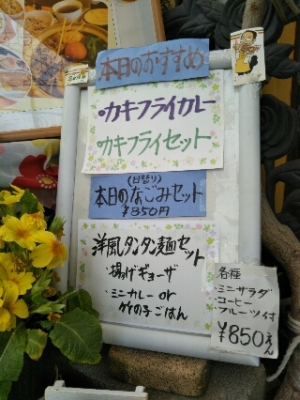 本日のおすすめ
・カキフライカレー
カキフライセット
(日替り)
本日のなごみセット
¥850円
洋風タンタン麺セット
・揚げギョーザ
・ミニカレー or
竹の子ごはん
各種
・ミニサラダ
・コーヒー
・フルーツ付
¥850えん